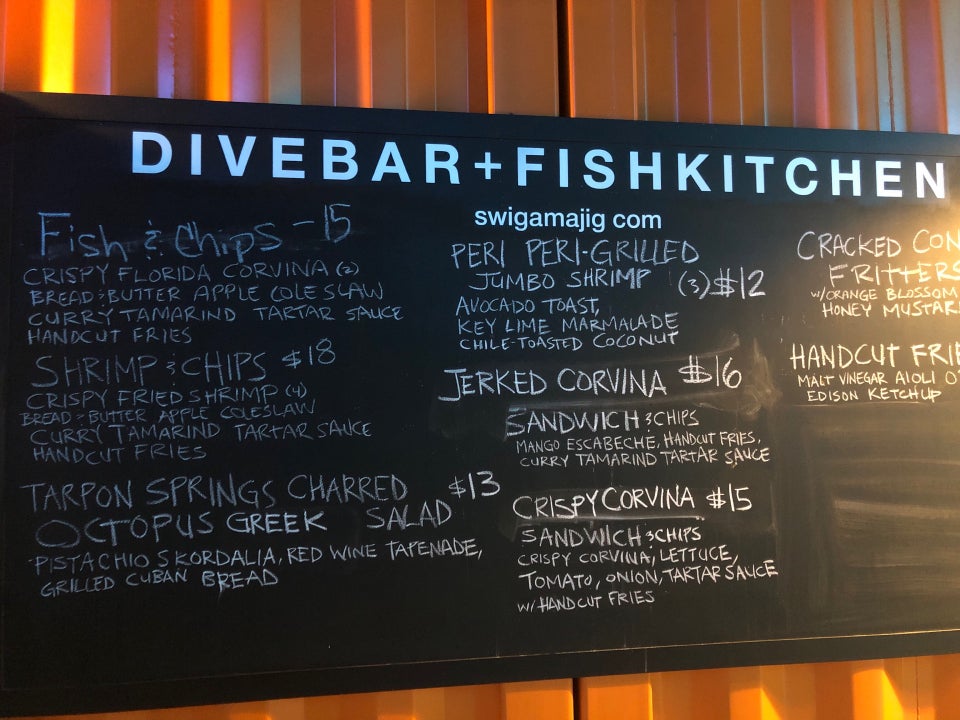 DIVEBAR+FISHKITCHEN
swigamajig com
Fish & Chips -15
CRISPY FLORIDA CORVINA (2)
BREAD & BUTTER APPLE COLESLAW
CURRY TAMARIND TARTAR SAUCE
HANDCUT FRIES
SHRIMP & CHIPS $18
CRISPY FRIED SHRIMP (4)
BREAD & BUTTER APPLE COLESLAW
CURRY TAMARIND TARTAR SAUCE
HANDCUT FRIES
TARPON SPRINGS CHARRED $13
OCTOPUS GREEK SALAD
PISTACHIO SKORDALIA, RED WINE TAPENADE,
GRILLED CUBAN BREAD
PERI PERI-GRILLED
JUMBO SHRIMP (3) $12
AVOCADO TOAST,
KEY LIME MARMALADE
CHILE-TOASTED COCONUT
JERKED CORVINA $16
SANDWICH & CHIPS
MANGO ESCABECHE, HANDCUT FRIES,
CURRY TAMARIND TARTAR SAUCE
CRISPY CORVINA $15
SANDWICH & CHIPS
CRISPY CORVINA, LETTUCE,
TOMATO, ONION, TARTAR SAUCE
W/ HANDCUT FRIES
CRACKED
FRITTERS
W/ORANGE BLOSSOM
HONEY
HANDCUT
MALT VINEGAR AIOLI
EDISON KETCHUP